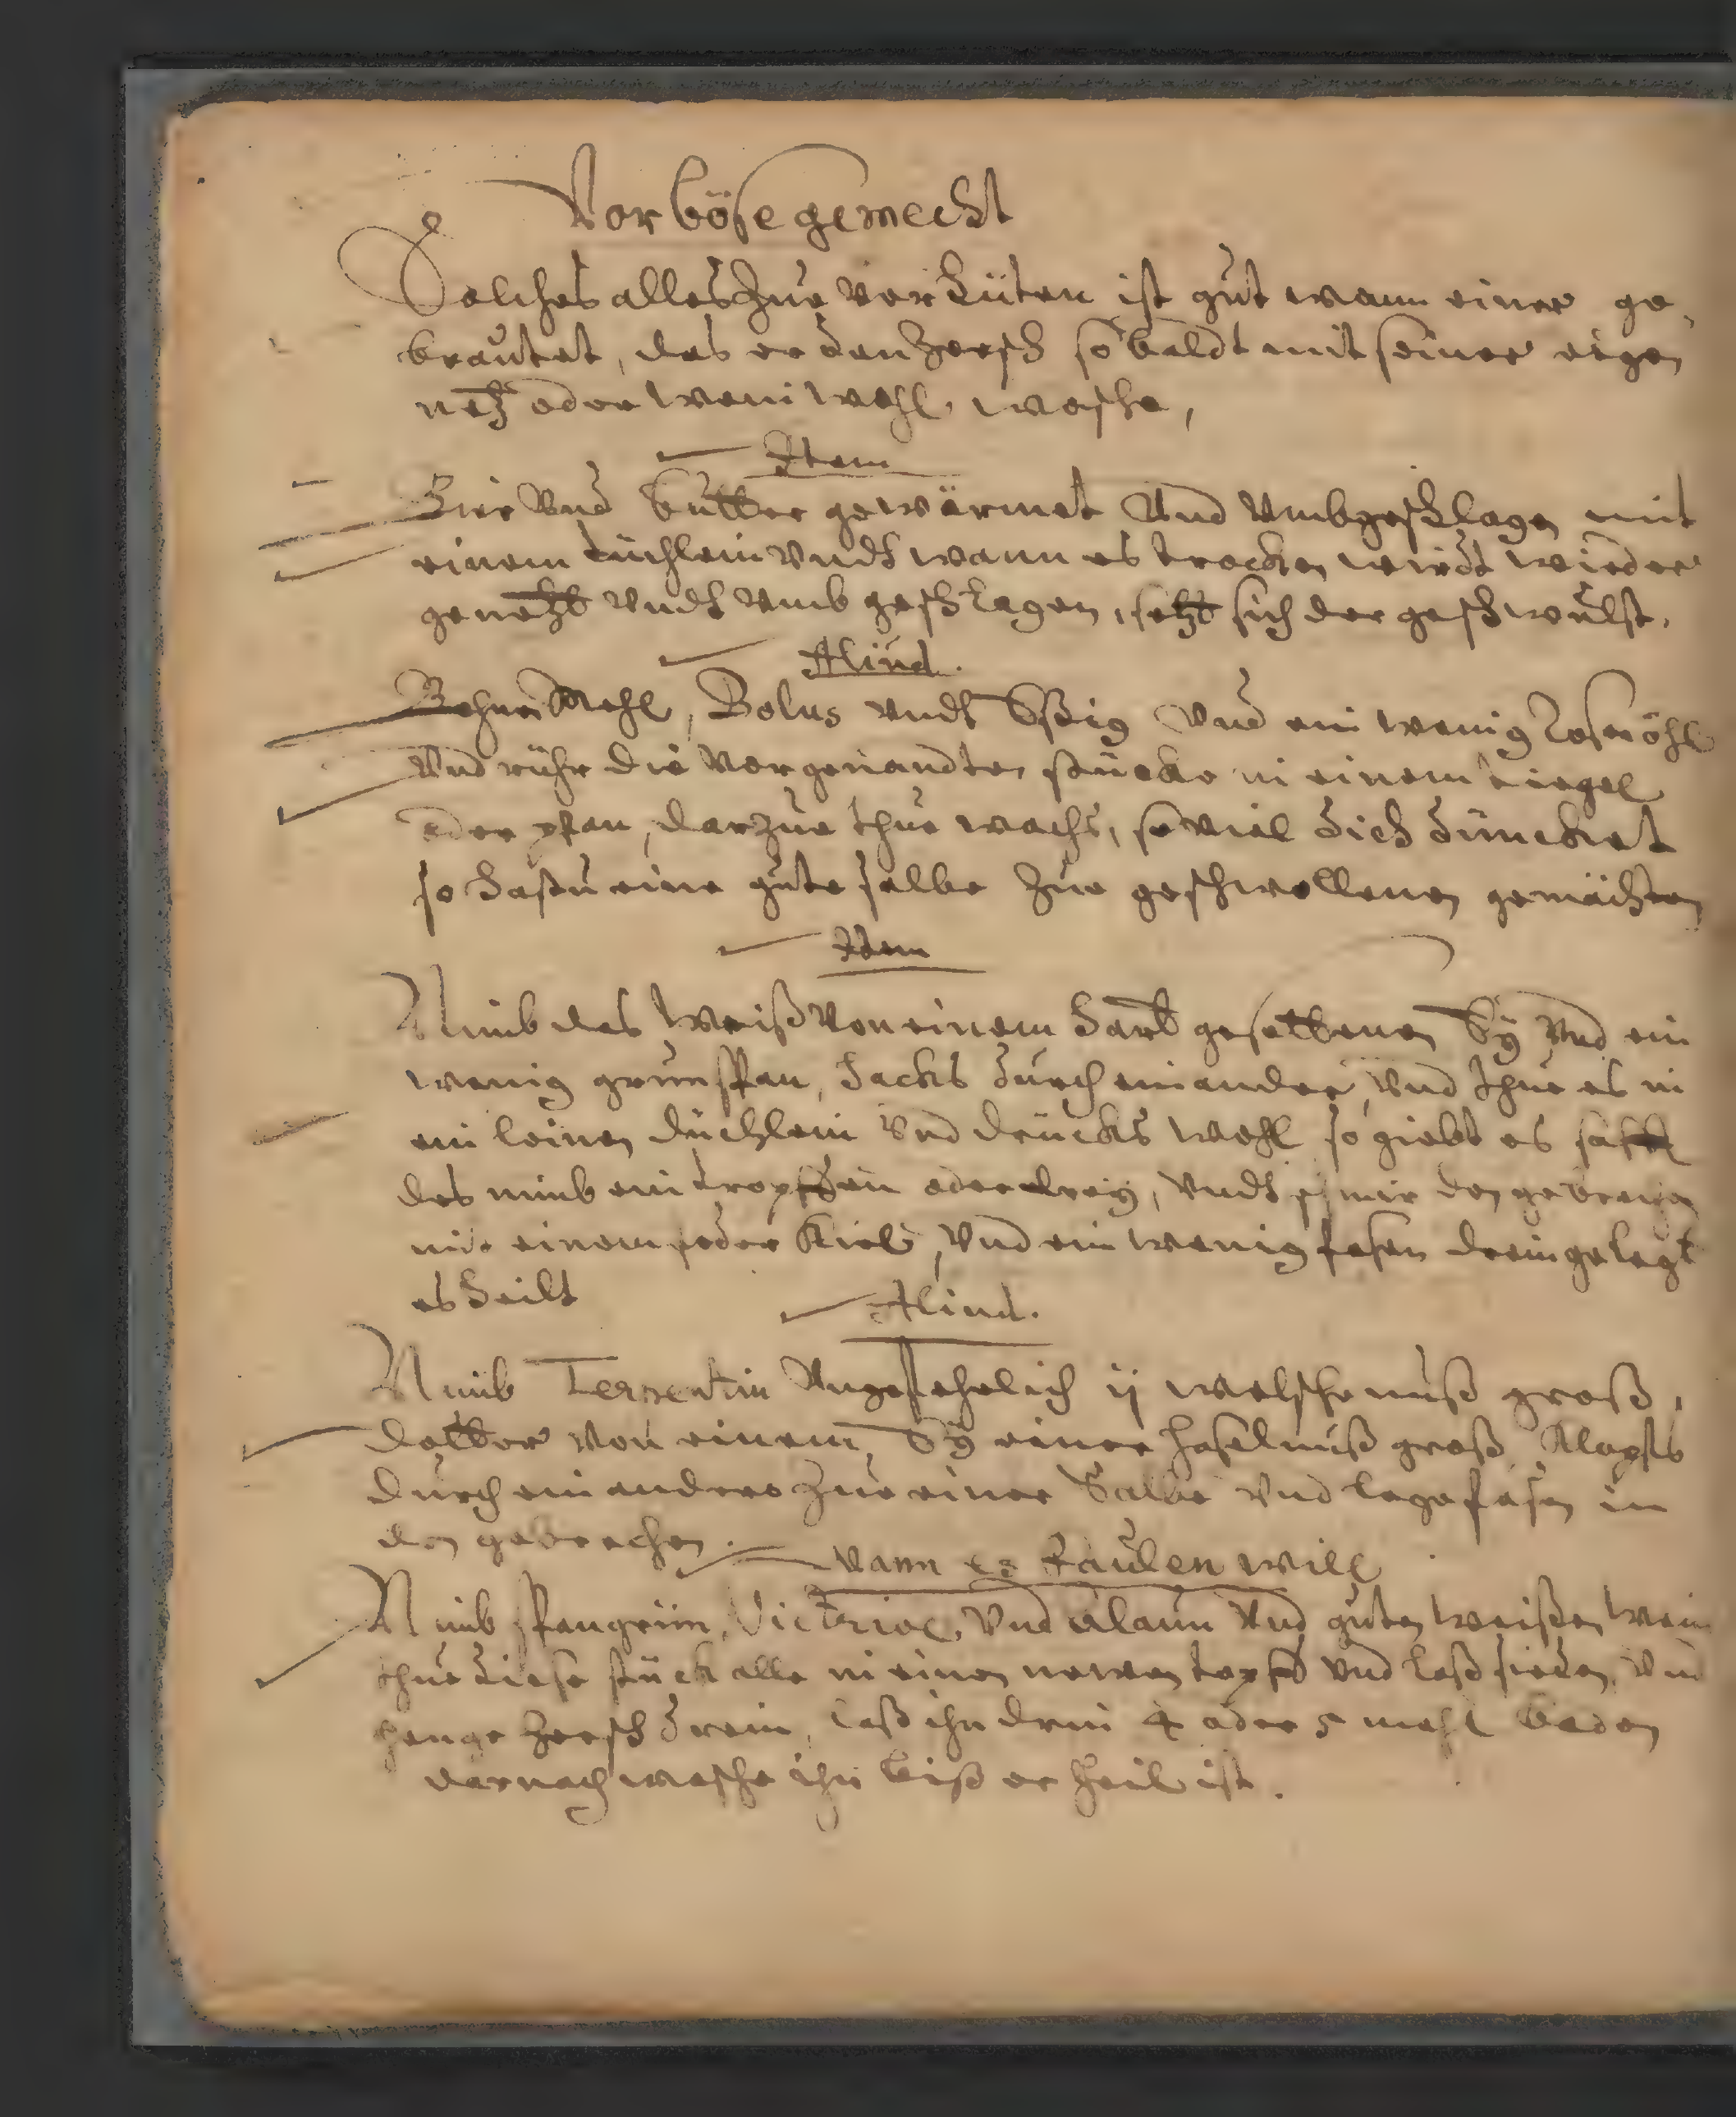 Vor böse gemecht
Solches alles zue verhüten ist gut wann einer ge„
brautet, das er den Zersch so baldt mit seiner eigen
netz oder wein wohl wasche,
Item
Bier Vnd butter gewärmet Vnd Vmbgeschlagen mit
einem tüchlein Vndt wann es trocken wirdt wieder
genetzt Vndt Vmb geschlagen, setzt sich der geschwulst.
Aliud.
Bohnen Mehl, Bolus Vndt Eßig Vnd ein wenig Rosenöhl
Vnd rühr die Vorgenandten stücke in einem tiegel
oder pfan, darzue thue wachs, so viel dich düncket
so hastu eine gute salbe zue geschwollenen gemächten
Item
Nimb das Weiß von einem hart gesottenen Ey Vnd ein
wenig grunspan, hacks durch einander, Vnd thue es in
ein leinen düchlein Vnd drucks wohl so giebt es safft
des nimb ein tropffen oder drey, Vndt schmir den gebrechen
mit einem feder Kiel, Vnd ein wenig fasen drein gelegt
es heilt
Aliud.
Nimb Terpentin Vngefehrlich ij welsche nuß groß,
dotter von einem Ey einer haselnuß groß Klopffs
durch ein anders zue einer Salbe Vnd lege fasen in
den gebrechen.
Wann es faulen will
Nimb spangrün, Victriol, Vnd alaun Vnd guten weißen wein
thue diese stück alle in einen newen topff Vnd laß sieden, Vnd
henge Zersch drein, laß ihn drin 4 oder 5 mahl baden
darnach wasche ihn biß er heil ist.